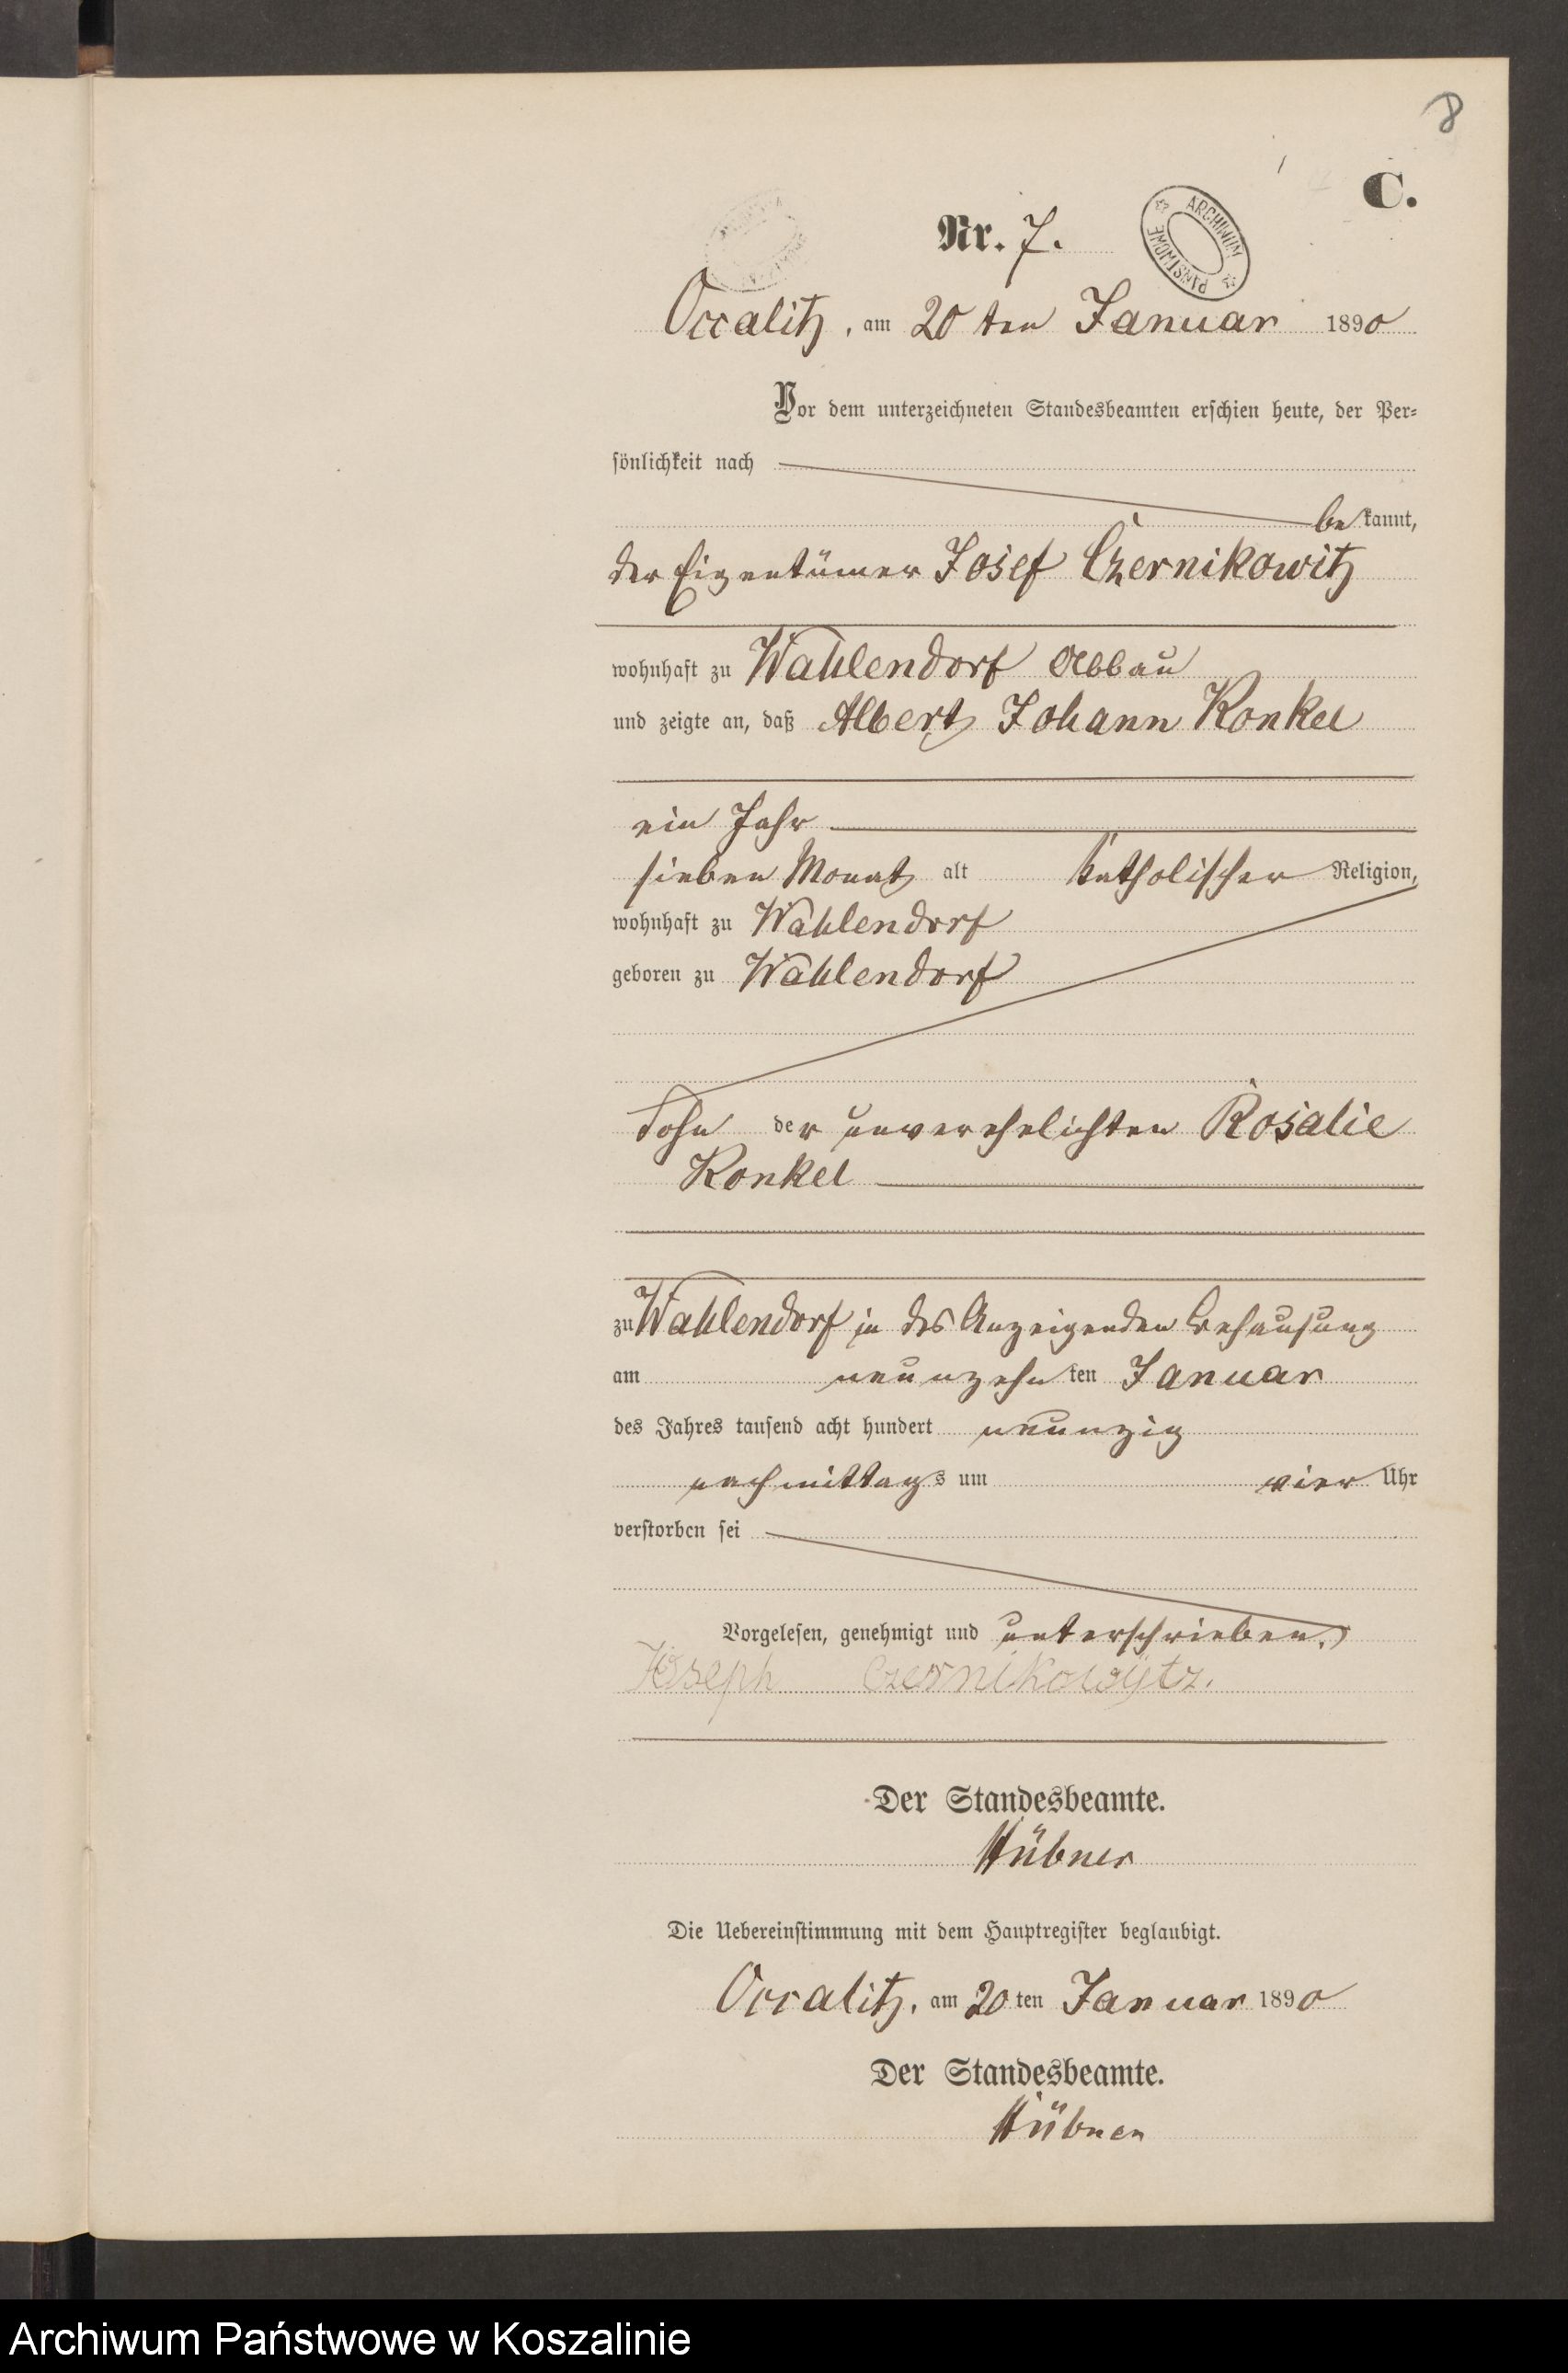 8
C.
ARCHIWUM PAŃSTWOWE
Nr. 7.
Occalitz, am 20 ten Januar 1890
Vor dem unterzeichneten Standesbeamten erschien heute, der Per-
sönlichkeit nach
be kannt,
der Eigentümer Josef Czernikowitz
wohnhaft zu Wahlendorf Abbau
und zeigte an, daß Albert Johann Konkel
ein Jahr
sieben Monat alt katholischer Religion,
wohnhaft zu Wahlendorf
geboren zu Wahlendorf
Sohn der unverehelichten Rosalie
Konkel
zu Wahlendorf in des Anzeigenden Behausung
am neunzehn ten Januar
des Jahres tausend acht hundert neunzig
nachmittags um vier Uhr
verstorben sei
Vorgelesen, genehmigt und unterschrieben.
Joseph Czernikowytz.
Der Standesbeamte.
Hübner
Die Uebereinstimmung mit dem Hauptregister beglaubigt.
Occalitz, am 20 ten Januar 1890
Der Standesbeamte.
Hübner
Archiwum Państwowe w Koszalinie